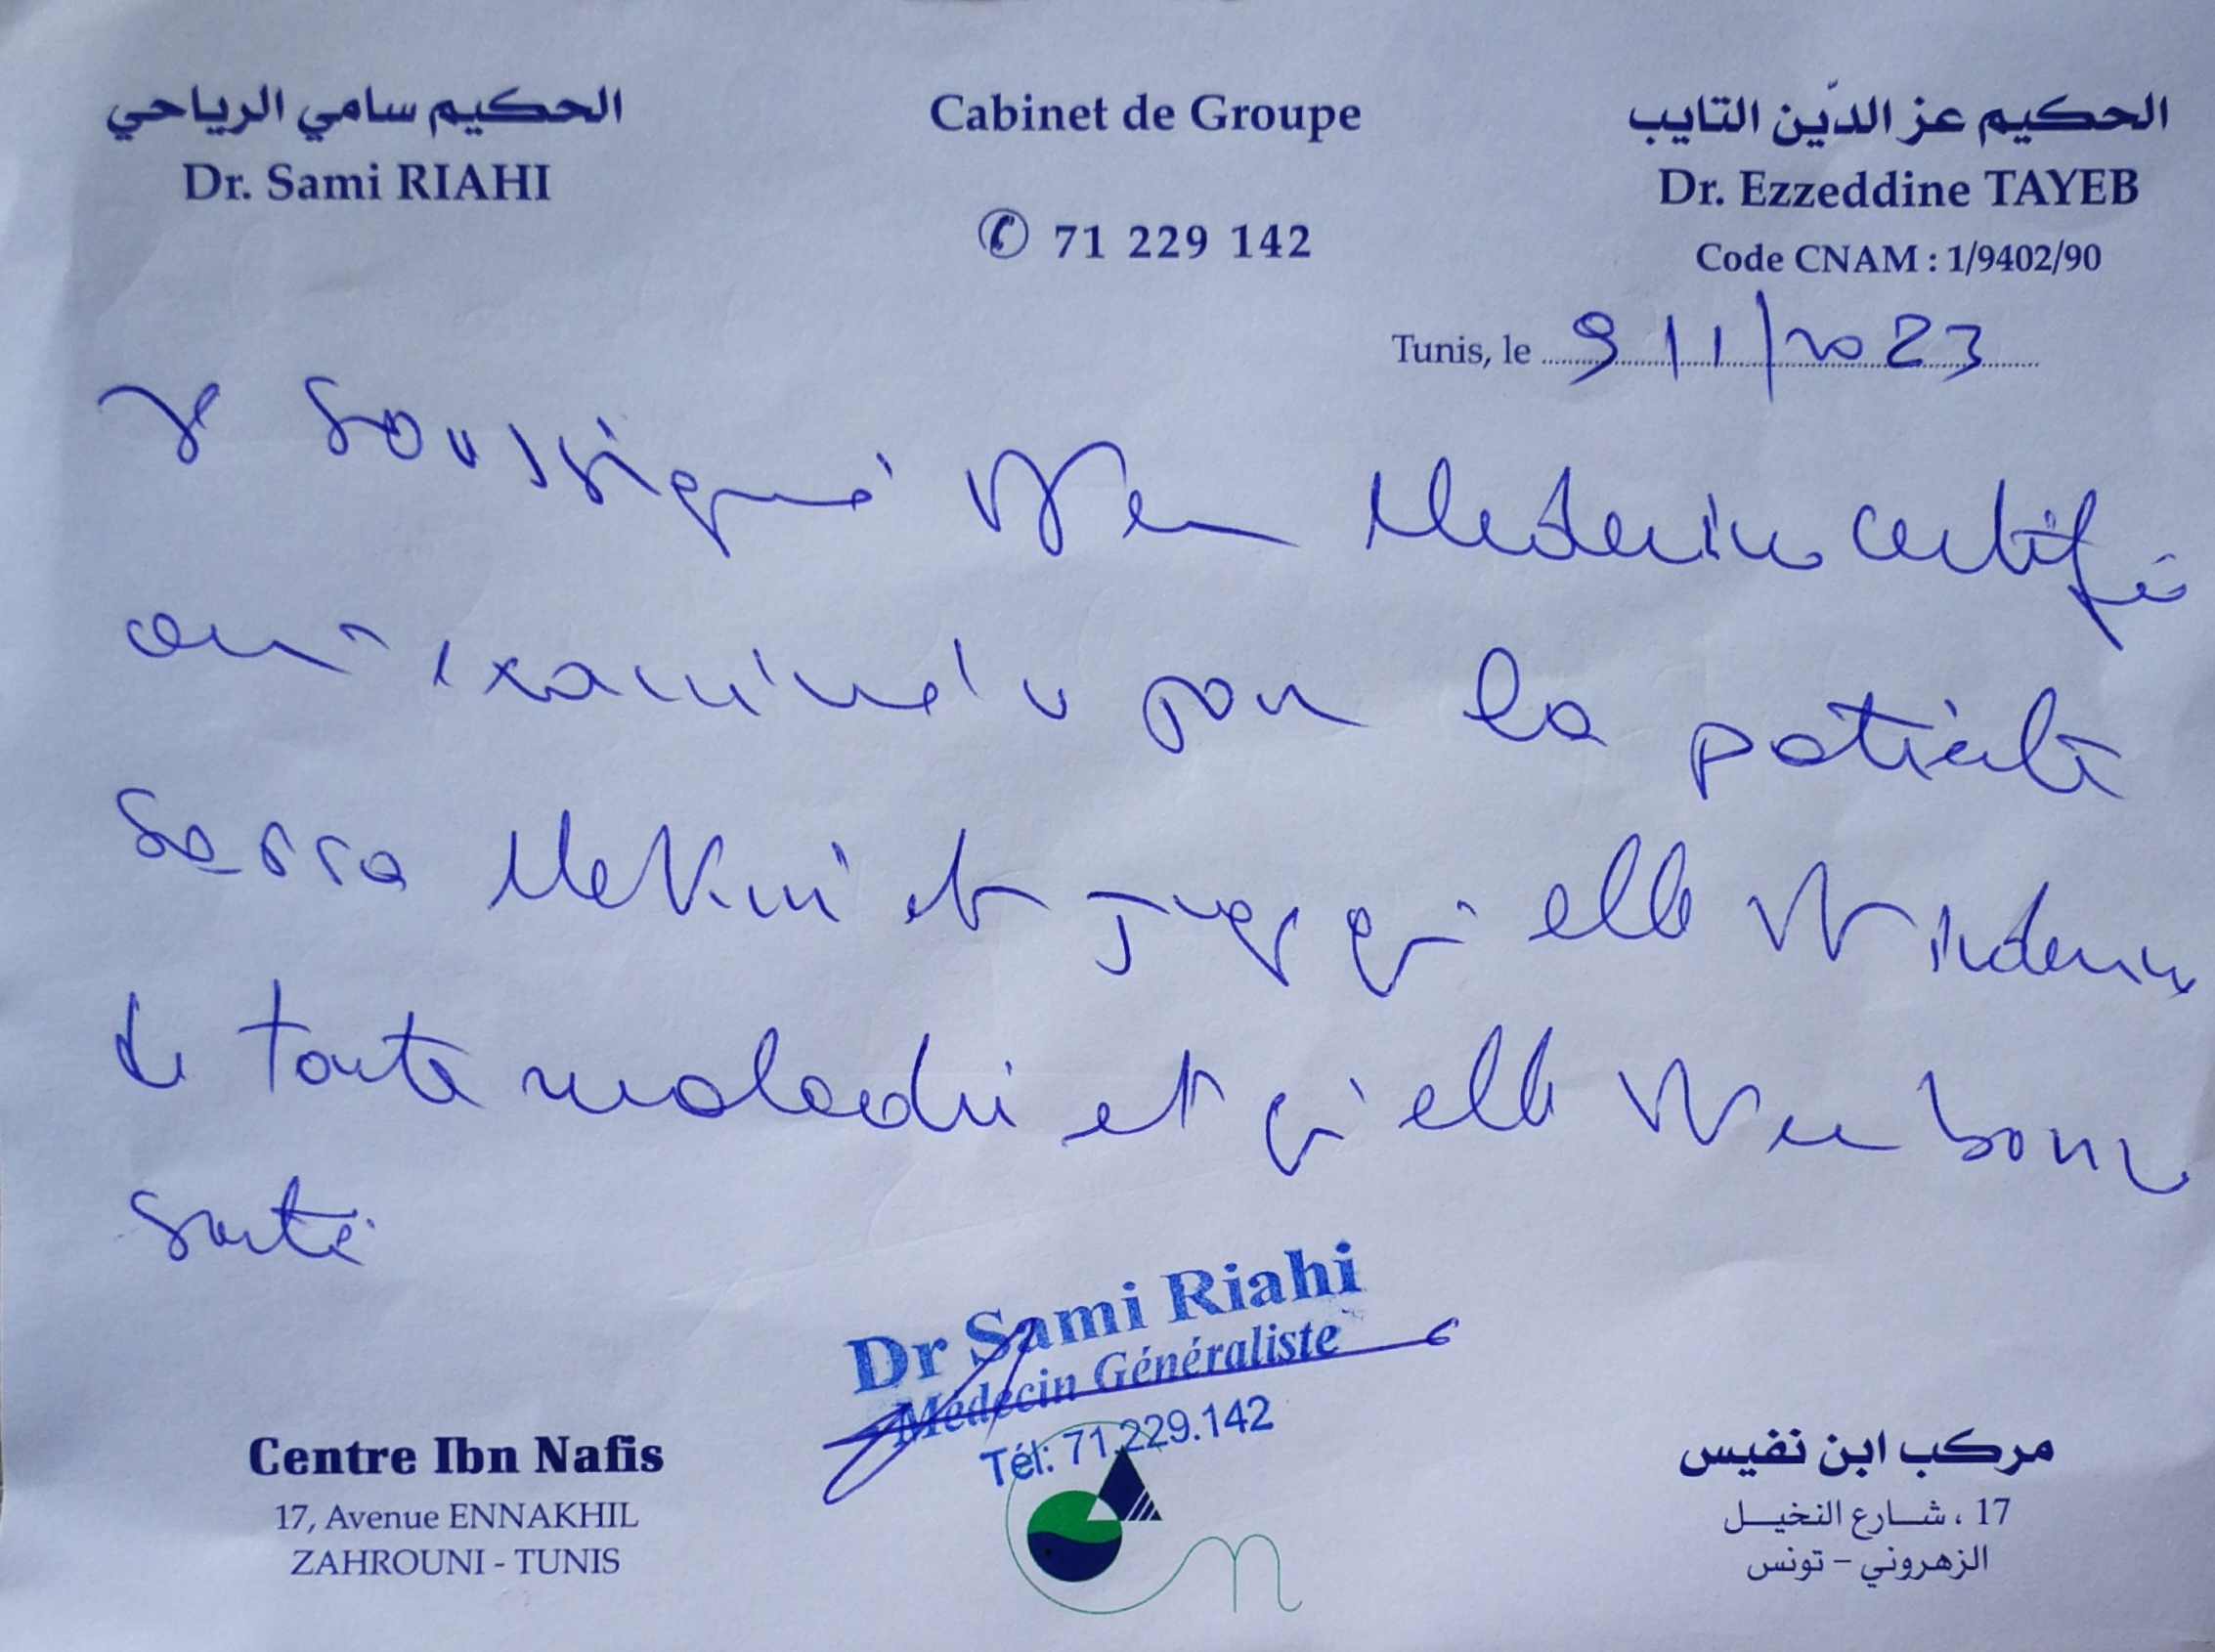 الحكيم سامي الرياحي
Dr. Sami RIAHI
Cabinet de Groupe
✆ 71 229 142
الحكيم عز الدّين التايب
Dr. Ezzeddine TAYEB
Code CNAM : 1/9402/90
Tunis, le 9/11/2023
Je soussigné Médecin certifie
avoir examiné la patiente
et juge qu'elle est indemne
de toute maladie et qu'elle est en bonne
santé
Dr Sami Riahi
Médecin Généraliste
Tél: 71.229.142
Centre Ibn Nafis
17, Avenue ENNAKHIL
ZAHROUNI - TUNIS
مركب ابن نفيس
17 ، شارع النخيل
الزهروني – تونس